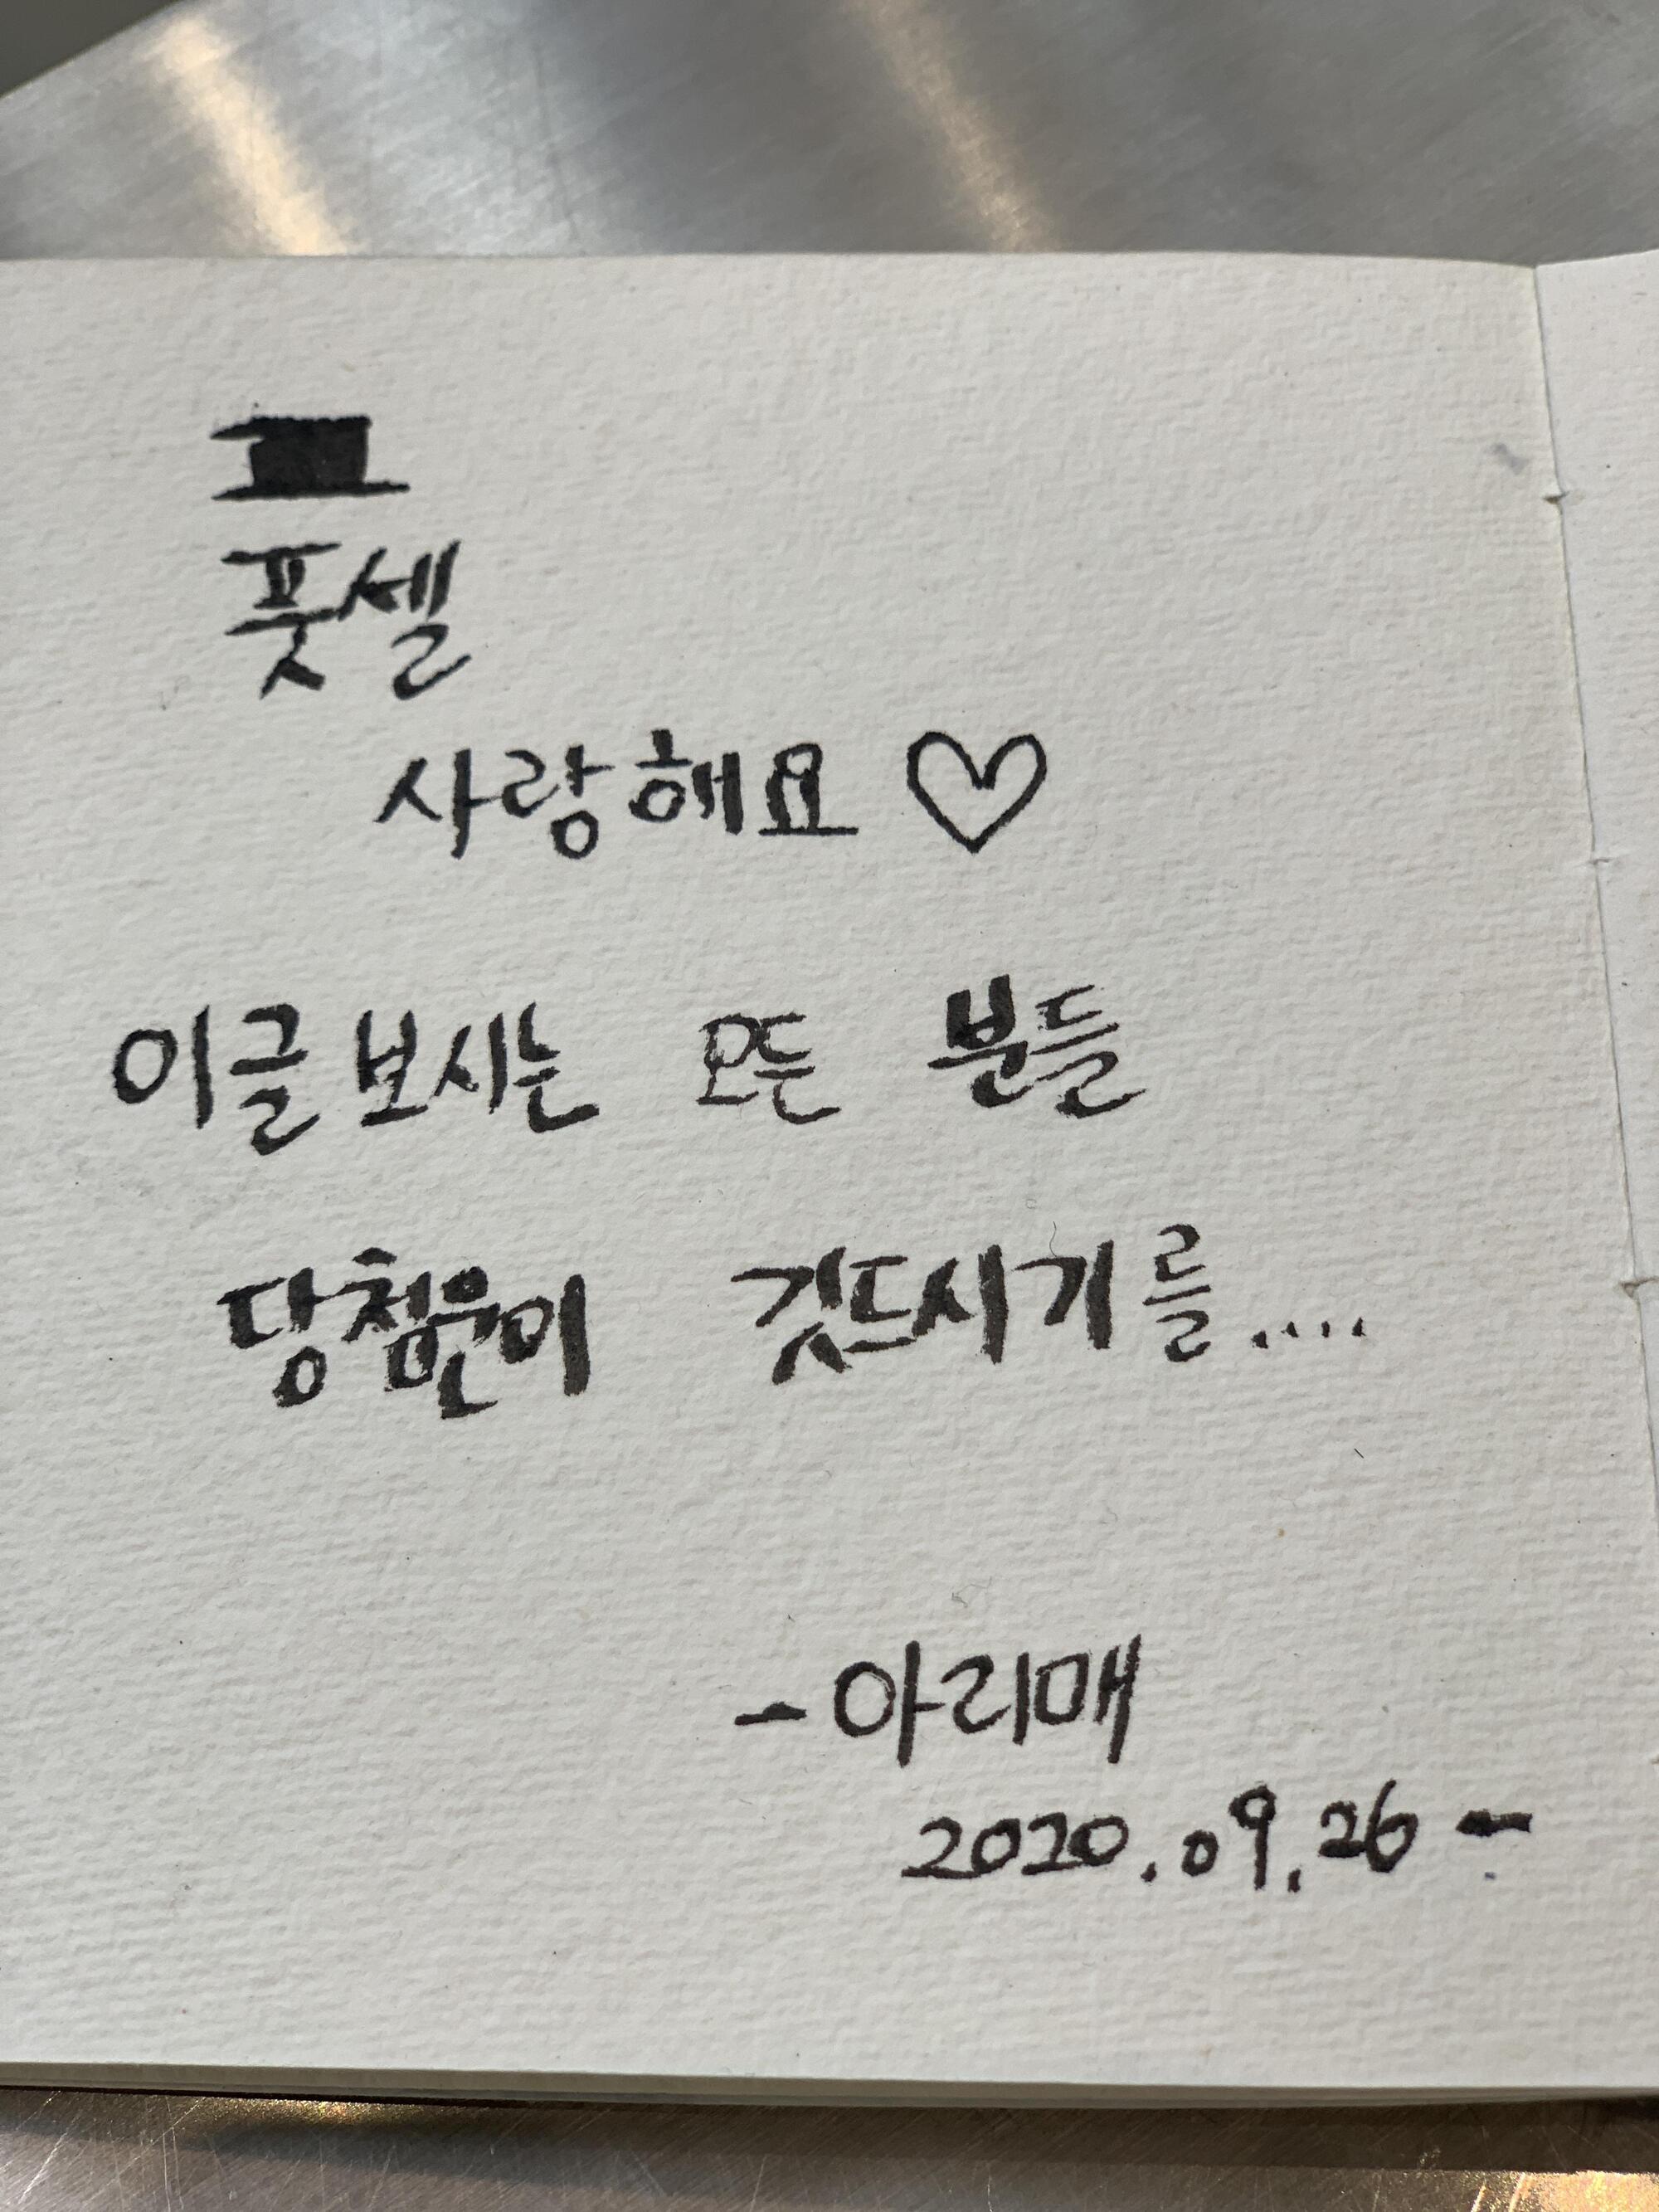 풋셀
사랑해요♡
이글 보시는 모든 분들
당첨운이 깃드시기를....
-아리매
2020.09.26-